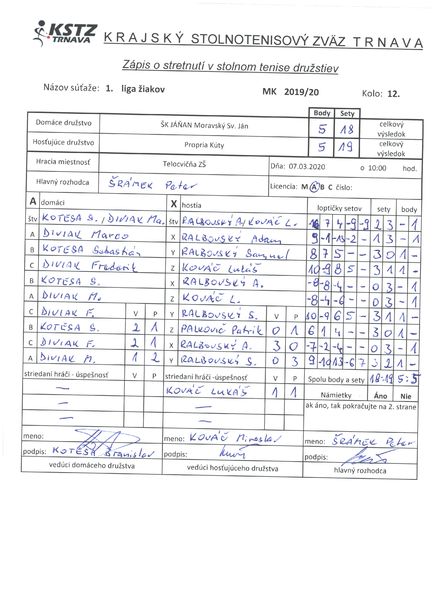 KSTZ
TRNAVA
KRAJSKÝ STOLNOTENISOVÝ ZVÄZ TRNAVA
Zápis o stretnutí v stolnom tenise družstiev
Názov súťaže: 1. liga žiakov MK 2019/20 Kolo: 12.
Body Sety
Domáce družstvo ŠK JÁŇAN Moravský Sv. Ján 5 18 celkový výsledok
Hosťujúce družstvo Propria Kúty 5 19 celkový výsledok
Hracia miestnosť Telocvičňa ZŠ Dňa: 07.03.2020 o 10:00 hod.
Hlavný rozhodca ŠRÁMEK Peter Licencia: M A B C číslo:
A domáci X hostia loptičky setov sety body
štv KOTESA S., DIVIAK Ma. štv RALBOVSKÝ A, KOVÁČ L. 7 4 -9 -9 2 3 - 1
A DIVIAK Marco X RALBOVSKÝ Adam 9 -1 -13 -2 - 1 3 - 1
B KOTESA Sebastián Y RALBOVSKÝ Samuel 8 7 5 - - 3 0 1 -
C DIVIAK Frederik Z KOVÁČ Lukáš 10 -9 8 5 - 3 1 1 -
B KOTESA S. X RALBOVSKÝ A. -8 -8 -4 - - 0 3 - 1
A DIVIAK M. Z KOVÁČ L. -8 -4 -6 - - 0 3 - 1
C DIVIAK F. V P Y RALBOVSKÝ S. V P 10 -9 6 5 - 3 1 1 -
B KOTESA S. 2 1 Z PALKOVIČ Patrik 0 1 6 1 4 - - 3 0 1 -
C DIVIAK F. 2 1 X RALBOVSKÝ A. 3 0 -7 -2 -4 - - 0 3 - 1
A DIVIAK M. 1 2 Y RALBOVSKÝ S. 0 3 9 -10 13 -6 7 3 2 1 -
striedaní hráči - úspešnosť V P striedaní hráči - úspešnosť V P Spolu body a sety 18-19 5:5
— KOVÁČ LUKÁŠ 1 1 Námietky Áno Nie
— — ak áno, tak pokračujte na 2. strane
meno: meno: KOVÁČ Miroslav meno: ŠRÁMEK Peter
podpis: KOTESA Branislav podpis: podpis:
vedúci domáceho družstva vedúci hosťujúceho družstva hlavný rozhodca